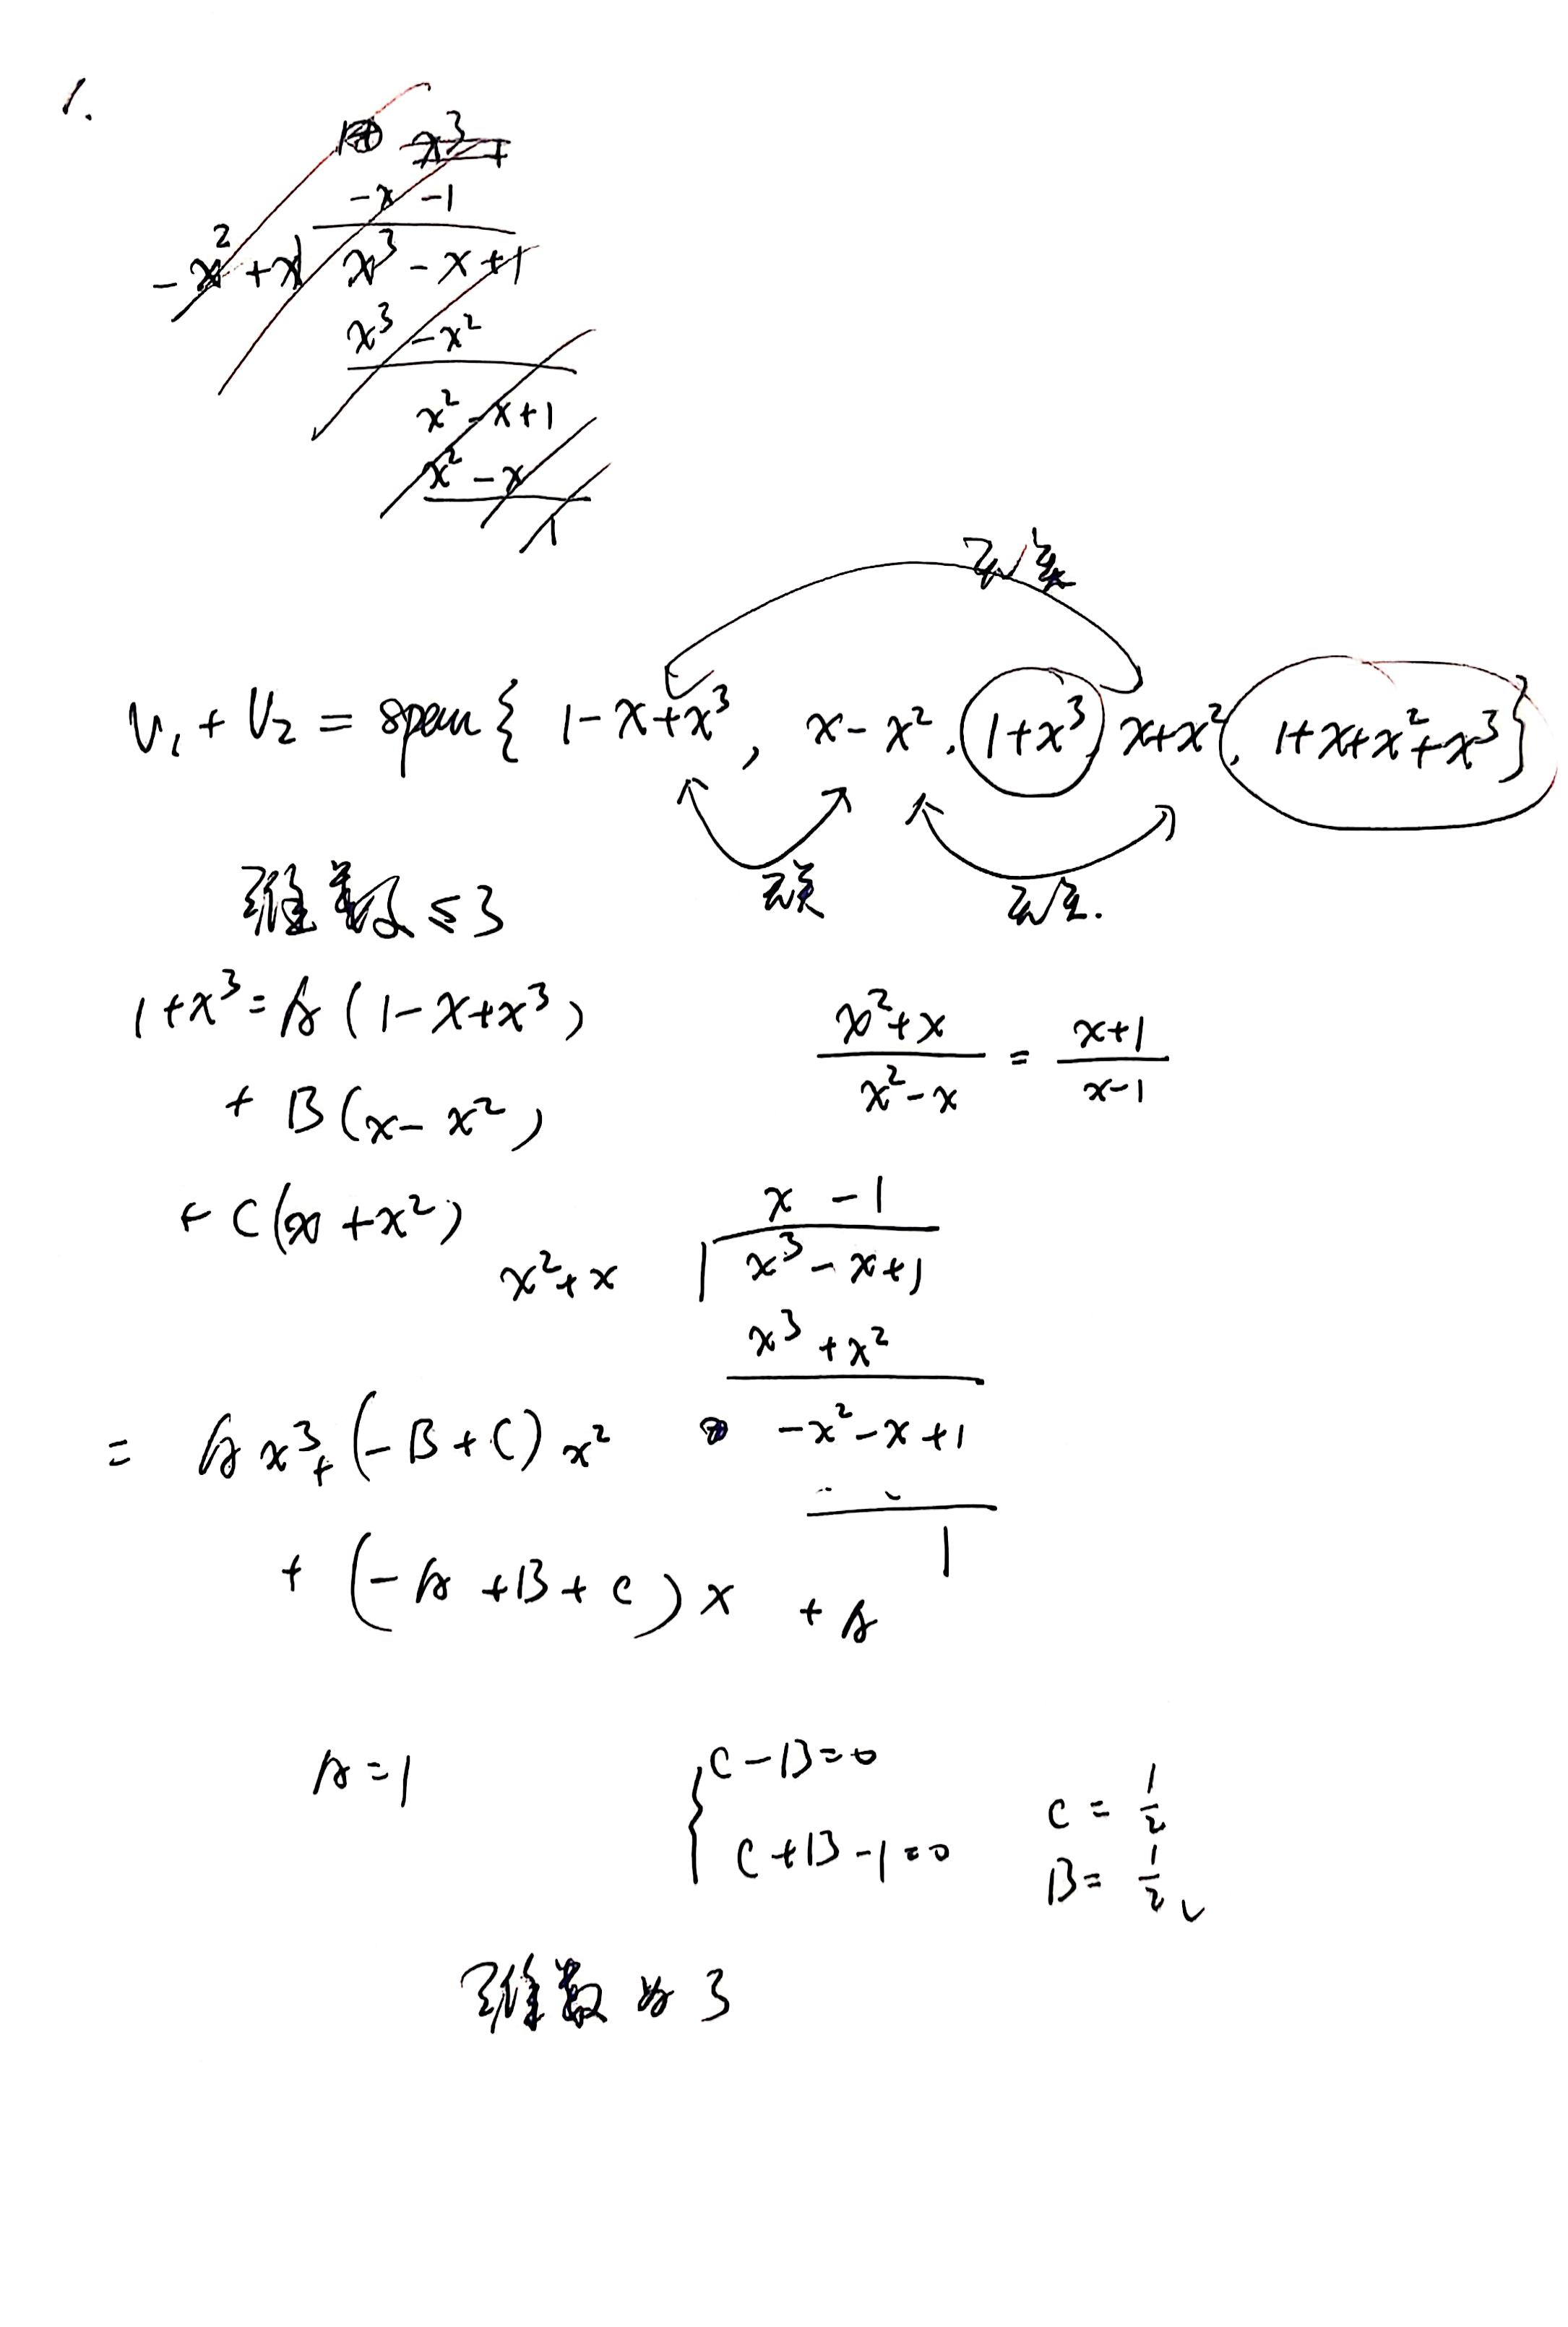 1.
x³
-x -1
-x²+x x³-x+1
x³-x²
x²-x+1
x²-x
1
无关
V₁+V₂ = span{ 1-x+x³, x-x², 1+x³, x+x², 1+x+x²+x³}
无关
无关.
维数≤3
1+x³=A(1-x+x³)
+ B(x-x²)
+ C(x+x²)
(x²+x)/(x²-x) = (x+1)/(x-1)
x -1
x²+x x³-x+1
x³+x²
-x²-x+1
1
= Ax³+(-B+C)x²
+ (-A+B+C)x +A
A=1
{C-B=0
C+B-1=0
C=1/2
B=1/2
维数为3